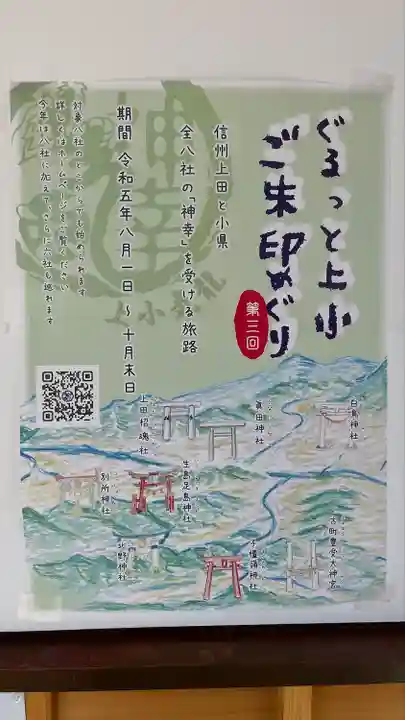 ぐるっと上小
ご朱印めぐり
第三回
信州上田と小県
全八社の「神幸」を受ける旅路
期間 令和五年八月一日〜十月末日
対象八社のどこからでも始められます
詳しくはホームページをご覧ください
今年は八社に加えて、さらに六社も巡れます
白鳥神社
眞田神社
上田招魂社
生島足島神社
別所神社
北野神社
子檀嶺神社
古町豊受大神宮